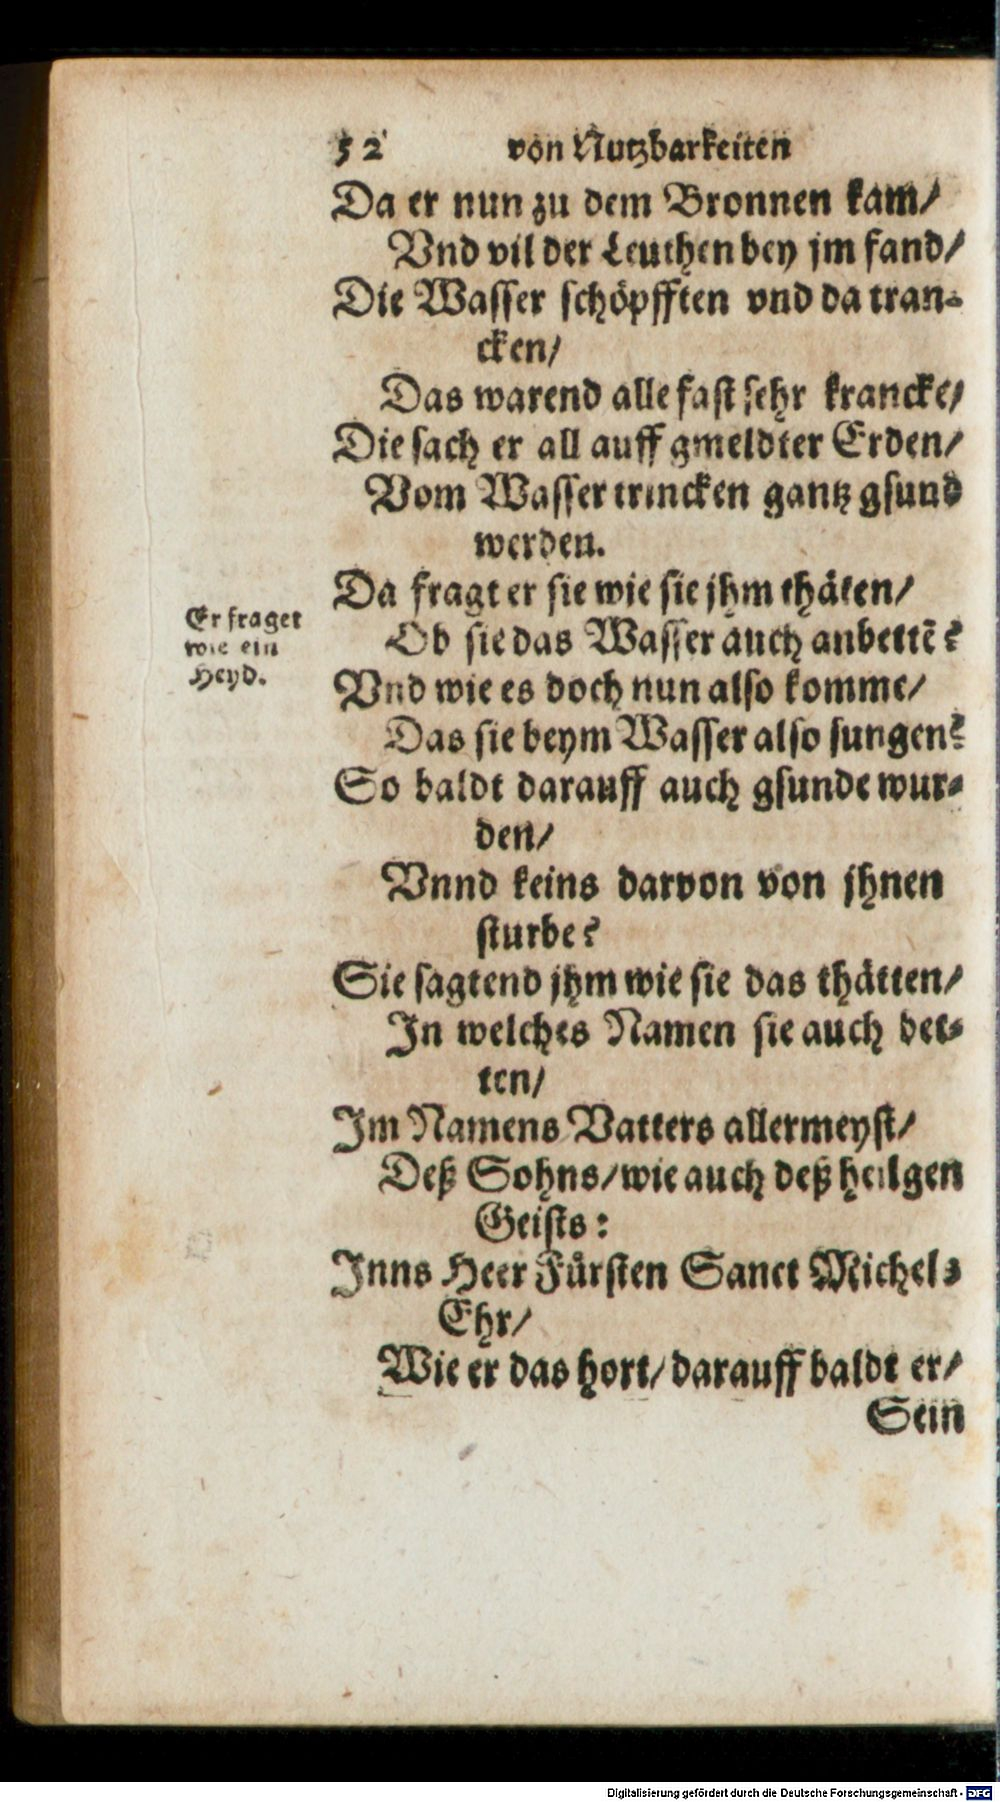 52 von Nutzbarkeiten
Da er nun zu dem Bronnen kam/
Vnd vil der Leuthen bey jm fand/
Die Wasser schöpfften vnd da tran-
cken/
Das warend alle fast sehr krancke/
Die sach er all auff gmeldter Erden/
Vom Wasser trincken gantz gsund
werden.
Da fragt er sie wie sie jhm thäten/
Er fraget
wie ein
Heyd.
Ob sie das Wasser auch anbettē?
Vnd wie es doch nun also komme/
Das sie beym Wasser also sungen?
So baldt darauff auch gsunde wur-
den/
Vnnd keins darvon von jhnen
sturbe?
Sie sagtend jhm wie sie das thätten/
In welches Namen sie auch bet-
ten/
Im Namens Vatters allermeyst/
Deß Sohns/ wie auch deß heilgen
Geists:
Inns Heer Fürsten Sanct Michel-
Ehr/
Wie er das hort/ darauff baldt er/
Sein
Digitalisierung gefördert durch die Deutsche Forschungsgemeinschaft - DFG